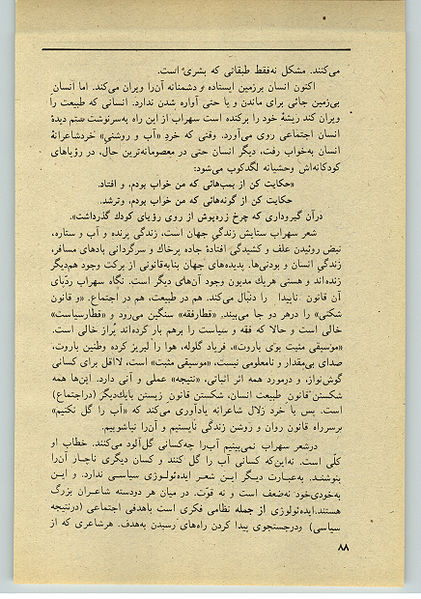 می‌کنند. مشکل نه‌فقط طبقاتی که بشری است.
اکنون انسان برزمین ایستاده و دشمنانه آن‌را ویران می‌کند. اما انسان
بی‌زمین جائی برای ماندن و یا حتی آواره شدن ندارد. انسانی که طبیعت را
ویران کند ریشهٔ خود را برکنده است سهراب از این راه به‌سرنوشت ستم دیدهٔ
انسان اجتماعی روی می‌آورد. وقتی که خردِ «آب و روشنی» خردشاعرانهٔ
انسان به‌خواب رفت، دیگر انسان حتی در معصومانه‌ترین حال، در رؤیاهای
کودکانه‌اش وحشیانه لگدکوب می‌شود:
«حکایت کن از بمب‌هائی که من خواب بودم، و افتاد.
حکایت کن از گونه‌هائی که من خواب بودم، وترشد.
درآن گیروداری که چرخ زره‌پوش از روی رؤیای کودك گذرداشت».
شعر سهراب ستایش زندگی جهان است، زندگی پرنده و آب و ستاره،
نبض روئیدن علف و کشیدگی افتادهٔ جاده پرخاك و سرگردانی بادهای مسافر،
زندگی انسان و بودنی‌ها. پدیده‌های جهان بنابه‌قانونی از برکت وجود هم‌دیگر
زنده‌اند و هستی هریك مدیون وجود آن‌های دیگر است. نگاه سهراب ردّپای
آن قانون ناپیدا را دنبال می‌کند. هم در طبیعت، هم در اجتماع. «و قانون
شکنی» را درهر دو جا می‌بیند. «قطارفقه» سنگین می‌رود و «قطارسیاست»
خالی است و حالا که فقه و سیاست را برهم بار کرده‌اند پُراز خالی است.
«موسیقی منیت بوی باروت»، فریاد گلوله، هوا را لبریز کرده وطنین باروت،
صدای بی‌مقدار و نامعلومی نیست، «موسیقی مثبت» است، لااقل برای کسانی
گوش‌نواز، و درمورد همه اثر اثباتی، «نتیجه» عملی و آنی دارد. این‌ها همه
شکستن قانون طبیعت انسان، شکستن قانون زیستن بایك‌دیگر (دراجتماع)
است. پس با خرد زلال شاعرانه یادآوری می‌کند که «آب را گل نکنیم»
برسرراه قانون روان و روشن زندگی نایستیم و آن‌را نیاشوبیم.
درشعر سهراب نمی‌بینیم آب‌را چه‌کسانی گل‌آلود می‌کنند. خطاب او
کلّی است. نه‌این‌که کسانی آب را گل کنند و کسان دیگری ناچار آن‌را
بنوشند. به‌عبارت دیگر این شعر ایده‌ئولوژی سیاسی ندارد. و این
به‌خودی‌خود نه‌ضعف است و نه قوّت. در میان هر دودسته شاعران بزرگ
هستند. ایده‌ئولوژی از جمله نظامی فکری است باهدفی اجتماعی (درنتیجه
سیاسی) ودرجستجوی پیدا کردن راه‌های رسیدن به‌هدف. هرشاعری که از
۸۸